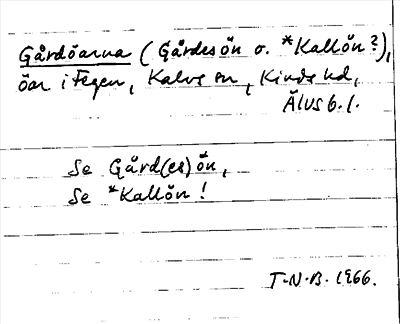 Gårdöarna (Gårdesön o. *Kallön?),
öar i Fegen, Kalvs sn, Kinds hd,
Älvsb. l.
Se Gård(es)ön,
Se *Kallön!
T-N-B. 1966.